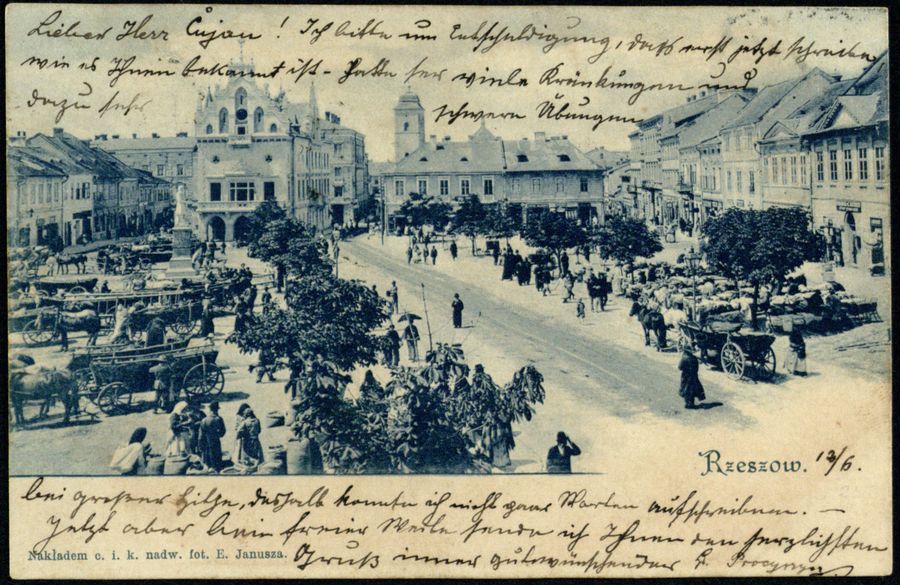 Lieber Herr Čujan! Ich bitte um Entschuldigung, dass erst jetzt schreibe
wie es Ihnen bekannt ist - hatte ser viele Kränkungen und
dazu sehr schwern Übungen
Rzeszow. 12/6.
bei grosser Hitze, deshalb konnte ich nicht gaar Karten aufschreiben. —
Jetzt aber bein freier Weile sende ich Ihnen den herzlichsten
Nakładem c. i. k. nadw. fot. E. Janusza.
Gruss immer gutewünschender